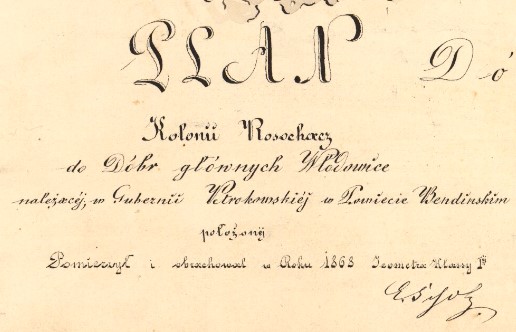 PLAN Dó
Kolonii Rosochacz
do Dóbr głównych Włodowice
należącéj, w Gubernii Petrokowskiéj w Powiecie Bendinskim
położonéj
Pomierzył i obrachował w Roku 1868 Jeometra Klassy